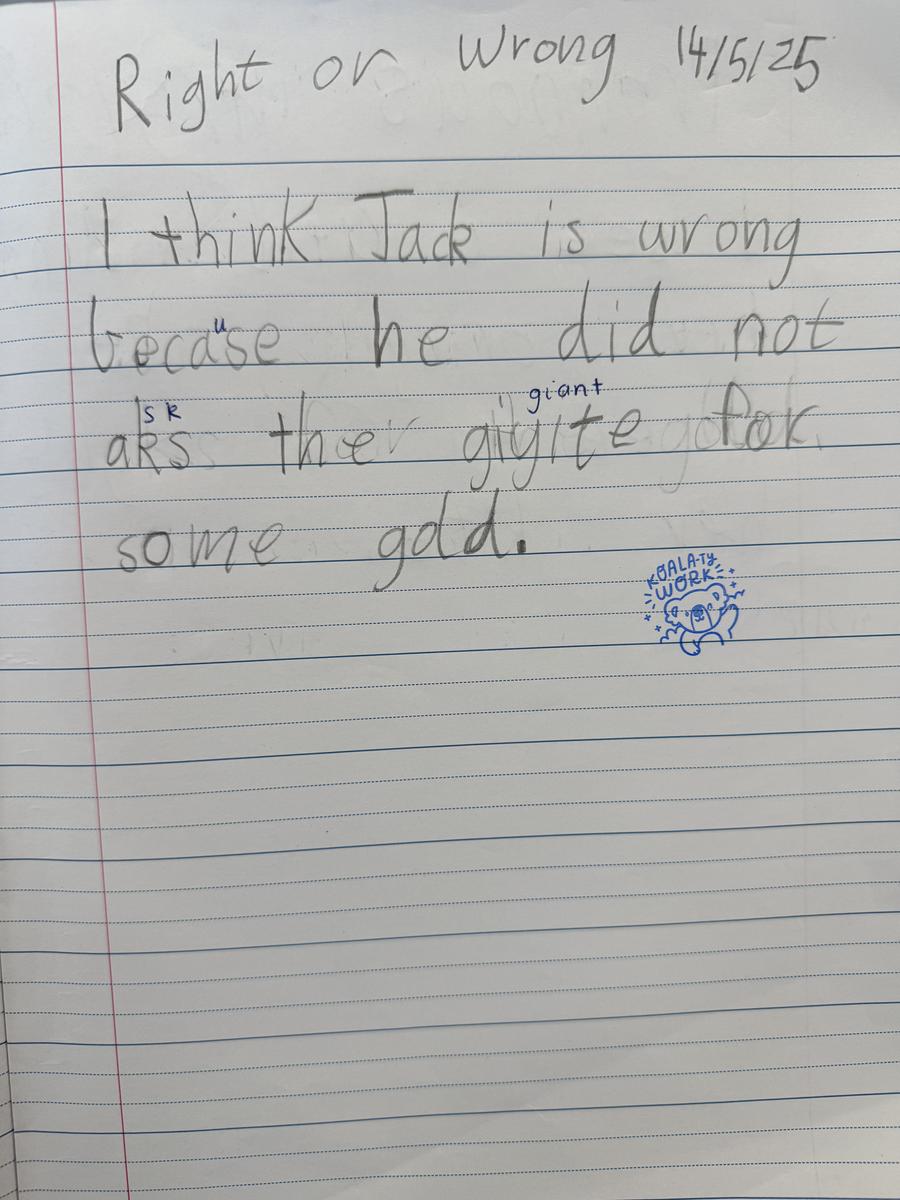 Right or Wrong 14/5/25
I think Jack is wrong
u
becase he did not
sk giant
aks the giyite for
some gold.
KOALA-TY
WORK